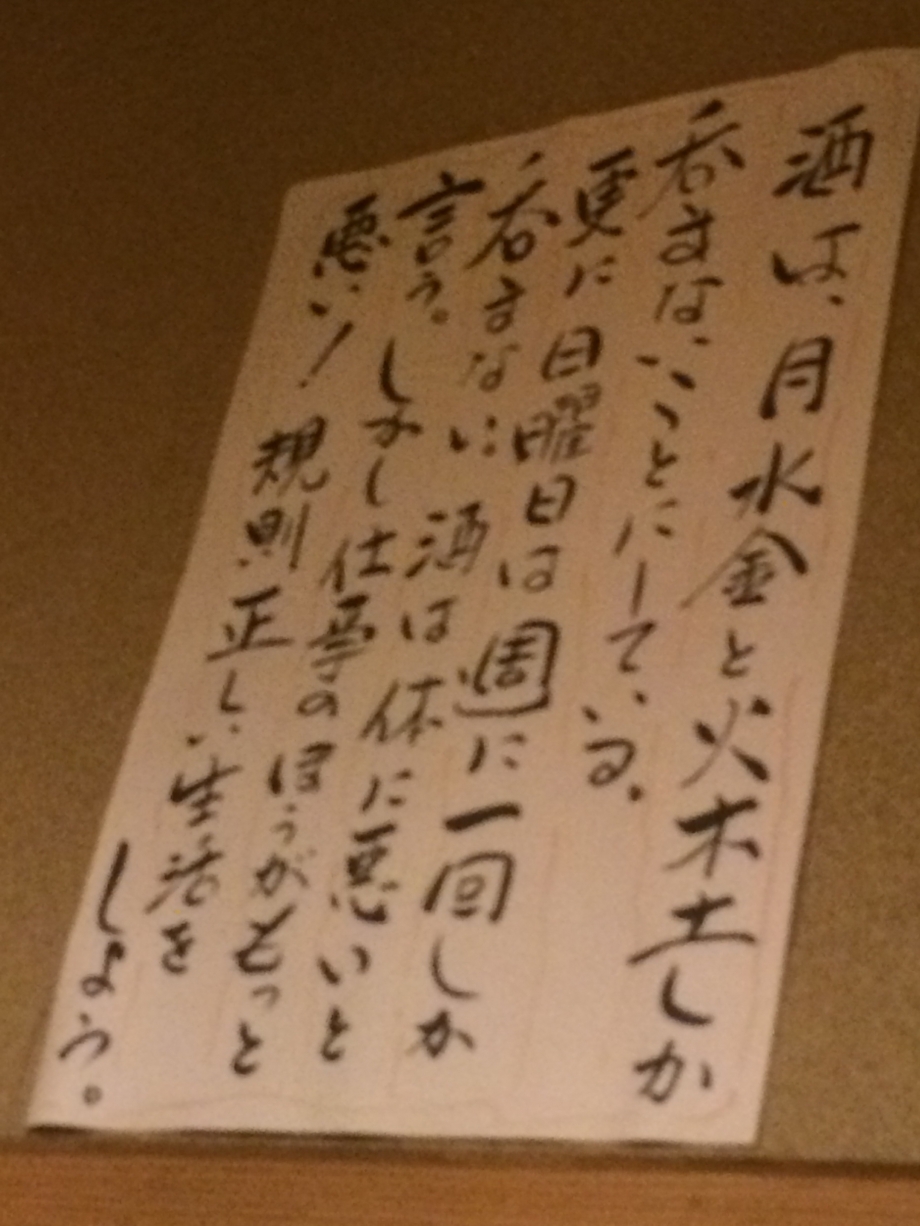 酒は、月水金と火木土しか
呑まないことにしている。
更に日曜日は週に一回しか
呑まない。酒は体に悪いと
言う。しかし仕事のほうがもっと
悪い！規則正しい生活を
しよう。